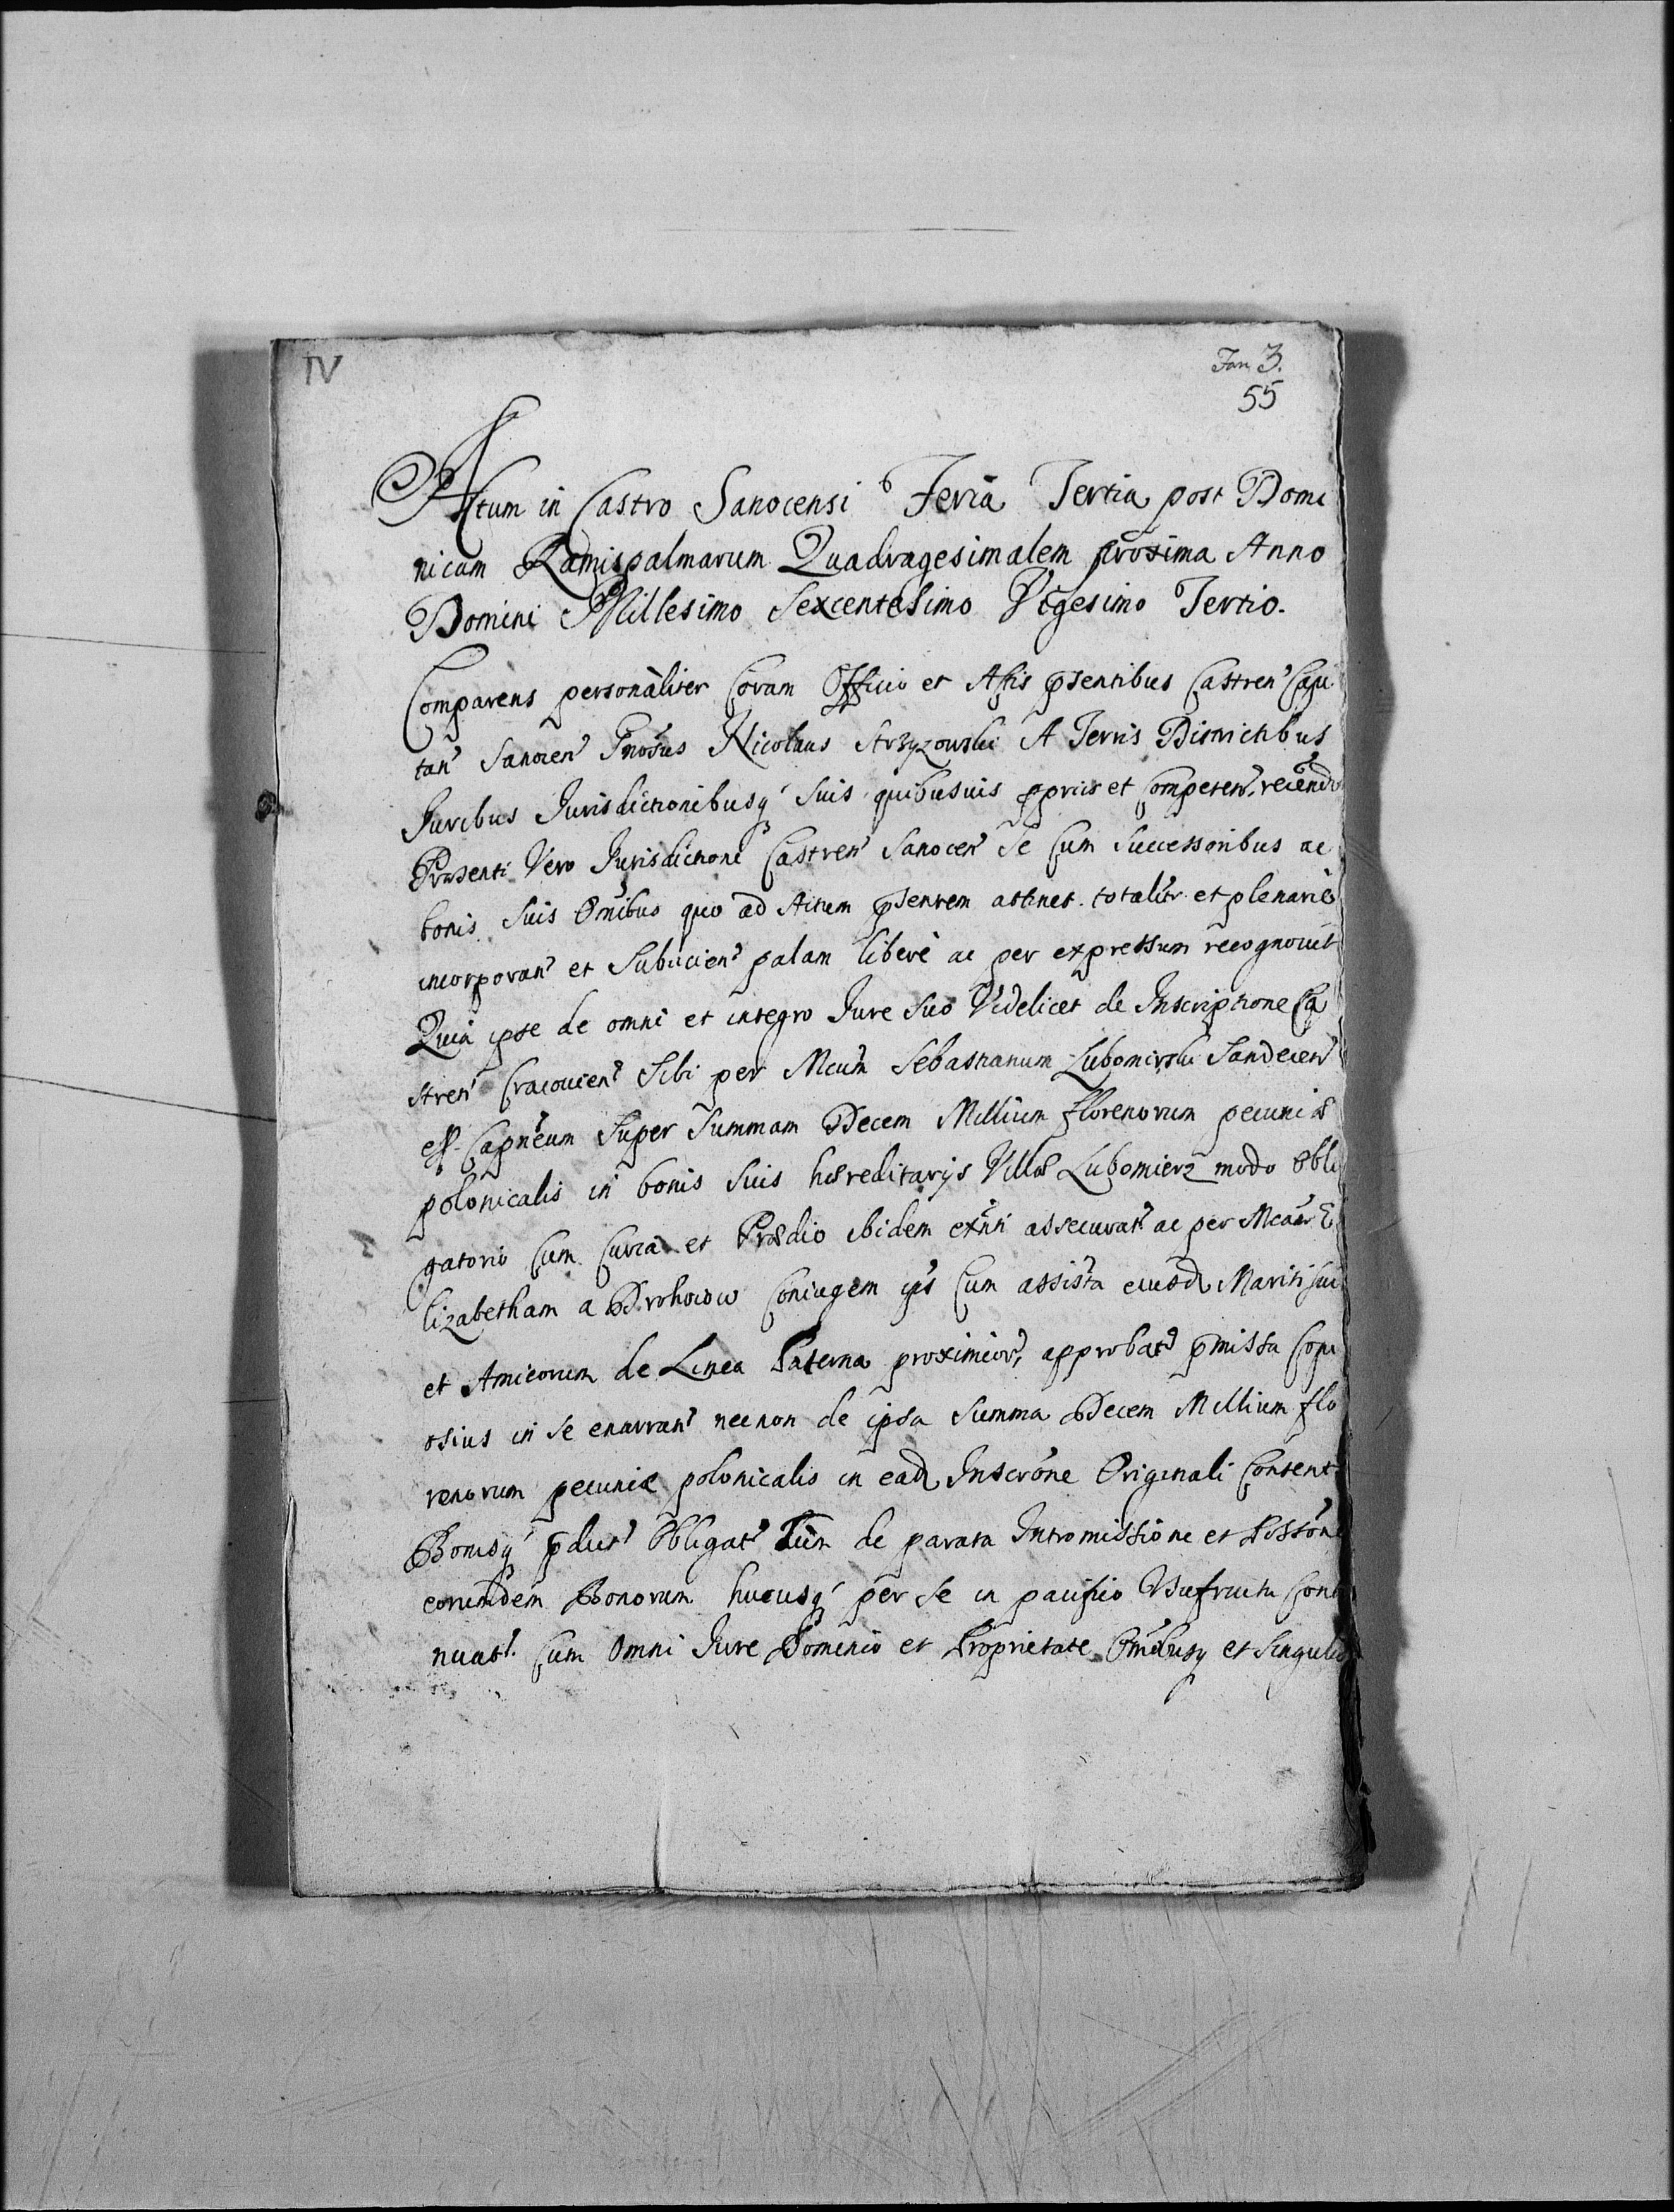 IV
Fan 3.
55
Actum in Castro Sanocensi Feria Tertia post Domi
nicam Ramispalmarum Quadragesimalem proxima Anno
Domini Millesimo Sexcentesimo Vigesimo Tertio.
Comparens personaliter Coram Officio et Actis pŝentibus Castren' Capi
tan' Sanocen' Gnosus Nicolaus Strzyzowski A Terris Districtibus
Juribus Jurisdictionibusq' suis quibusuis ppriis et Competen', recend
Præsenti Vero Jurisdictioni Castren' Sanocen' Se Cum Successoribus ac
bonis Suis Omibus quo ad Actum pŝentem attinet. totalitr et plenarie
incorporan' et Subiicien' palam libere ac per expressum recognouit
Quia ipse de omni et integro Jure suo Videlicet de Inscriptione Ca
stren' Cracouien' Sibi per Mcum Sebastianum Lubomirski Sandecen'
Capneum Super Summam Decem Millium florenorum pecuniæ
polonicalis in bonis suis hæreditarijs Villæ Lubomierz modo Obli
gatorio Cum Curia et Prædio ibidem exnti assecurat' ac per Mcam E
lizabetham a Drohoiow Coniugem ips Cum assista eiusd Mariti sui
et Amicorum de Linea Paterna proximior', approbat' pmissa Copi
osius in se enarran' necnon de ipsa Summa Decem Millium flo
renorum pecuniæ polonicalis in ead Inscrone Originali Content'
Bonisq' pdict' Obligat' Tum de parata Intromissione et Possone
eorumdem Bonorum hucusq' per se in pacifico Vsufructu Conti
nuat'. Cum Omni Jure Dominio et Proprietate Omibusq et Singulis